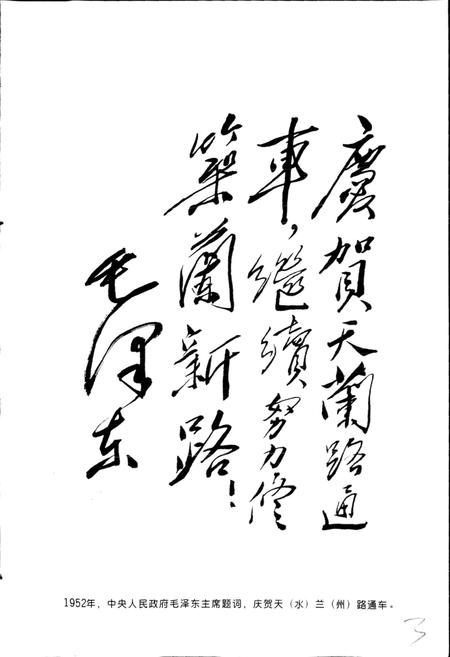 慶賀天蘭路通
車,繼續努力,修
築蘭新路!
毛澤东
1952年,中央人民政府毛泽东主席题词,庆贺天(水)兰(州)路通车。
3